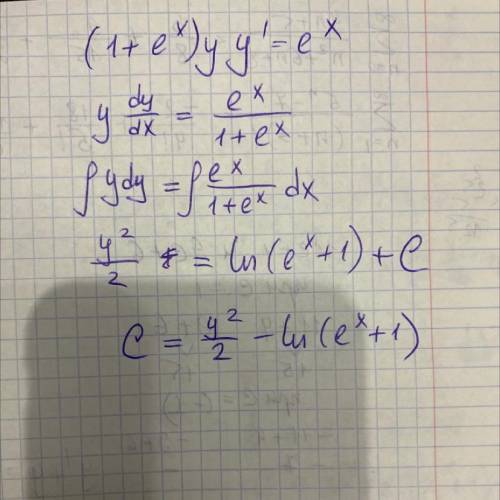 (1+e^x)y y'=e^x
y dy/dx = e^x/(1+e^x)
∫ydy=∫e^x/(1+e^x) dx
y²/2 = ln(e^x+1)+C
C = y²/2 - ln(e^x+1)